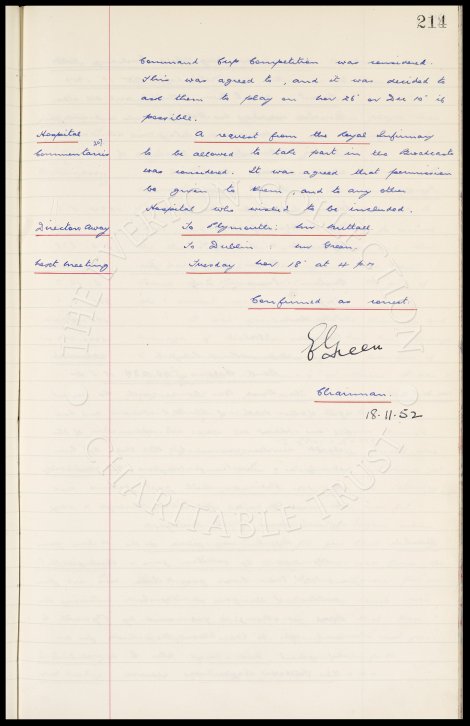 214
Command Cup Competition was considered.
This was agreed to, and it was decided to
ask them to play on Nov 26' or Dec 10' if
possible.
Hospital A request from the Royal Infirmary
Commentaries to be allowed to take part in the Broadcasts
was considered. It was agreed that permission
be given to them, and to any other
Hospital who wished to be included.
Directors Away To Plymouth: Mr Nuttall
To Dublin: Mr Green.
Next Meeting Tuesday Nov 18' at 4 pm
Confirmed as correct
E Green
Chairman.
18.11.52
THE EVERTON COLLECTION
CHARITABLE TRUST